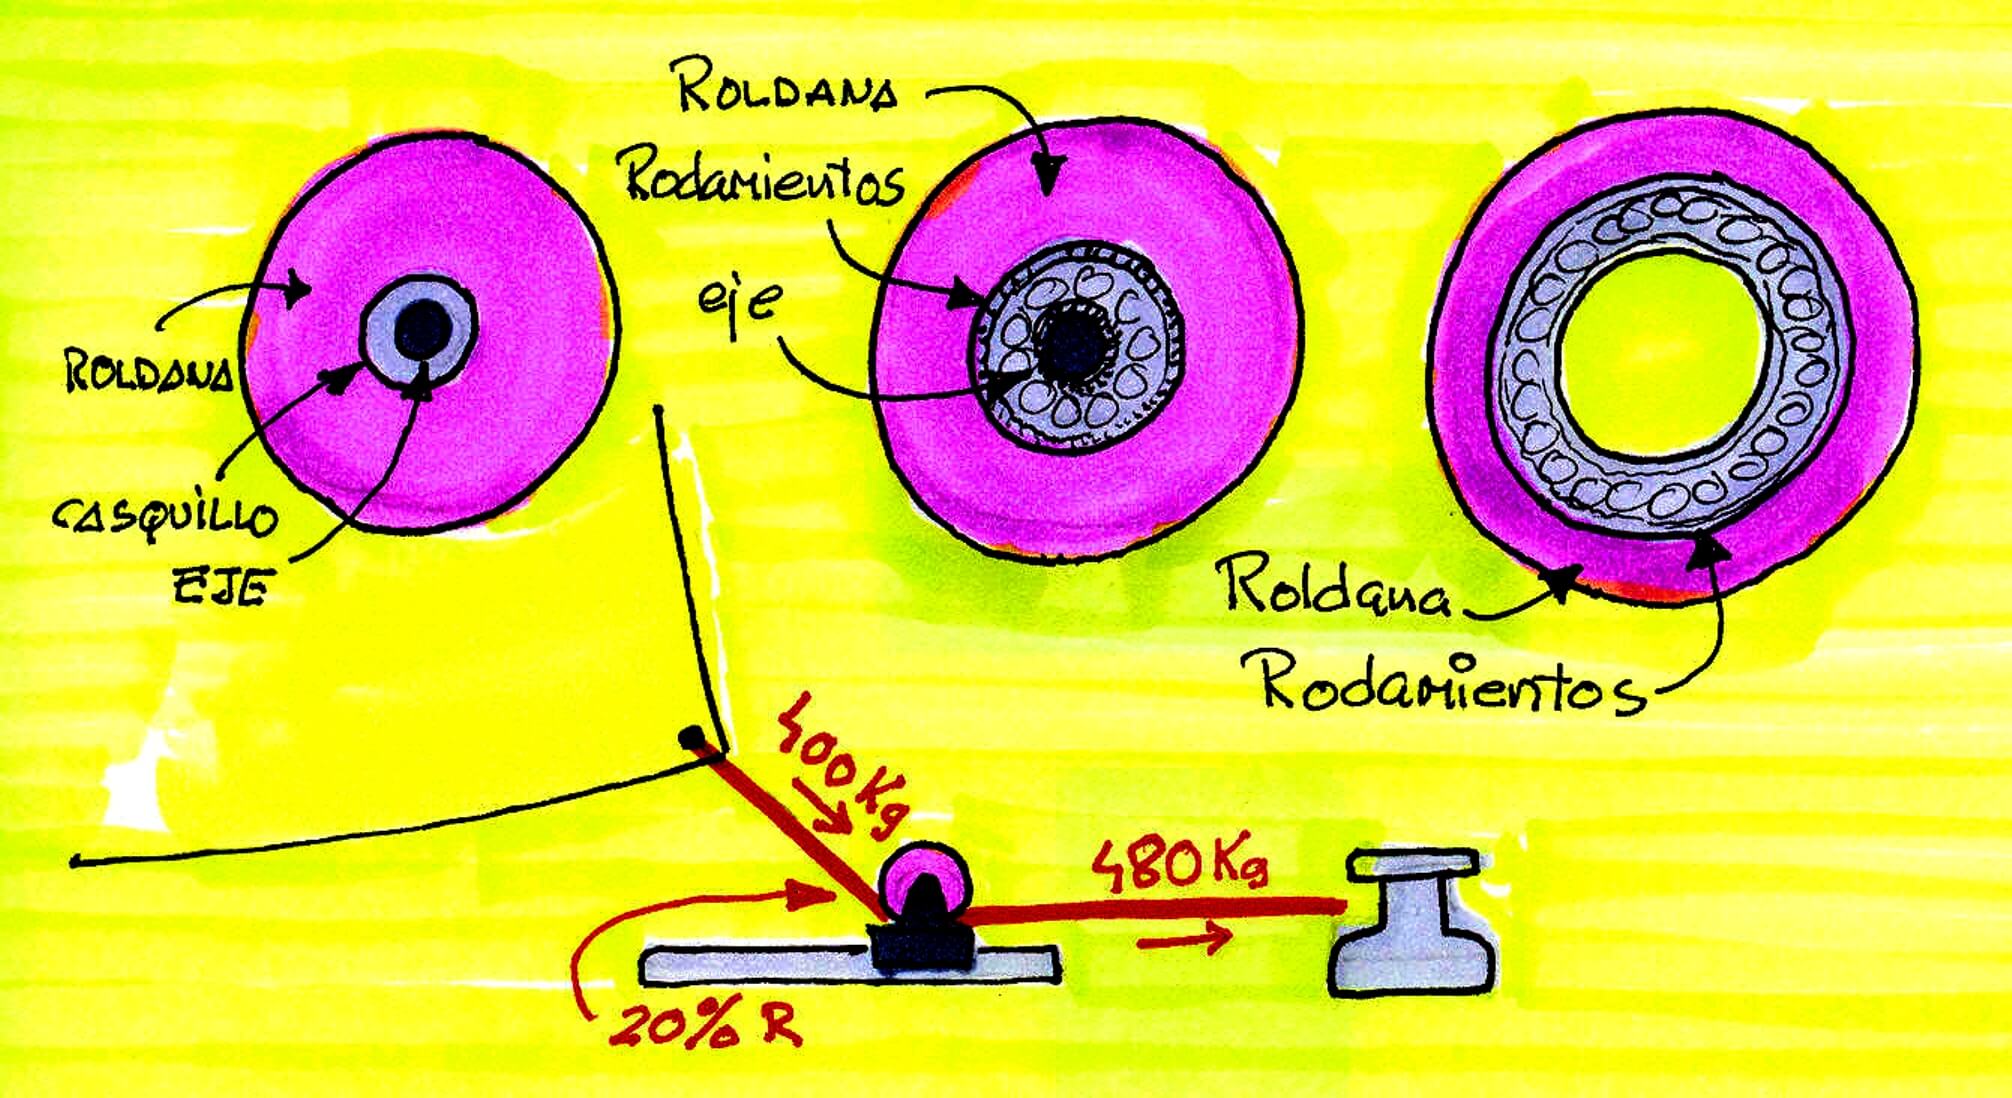 ROLDANA
CASQUILLO
EJE
ROLDANA
Rodamientos
eje
Roldana
Rodamientos
400Kg
480Kg
20% R